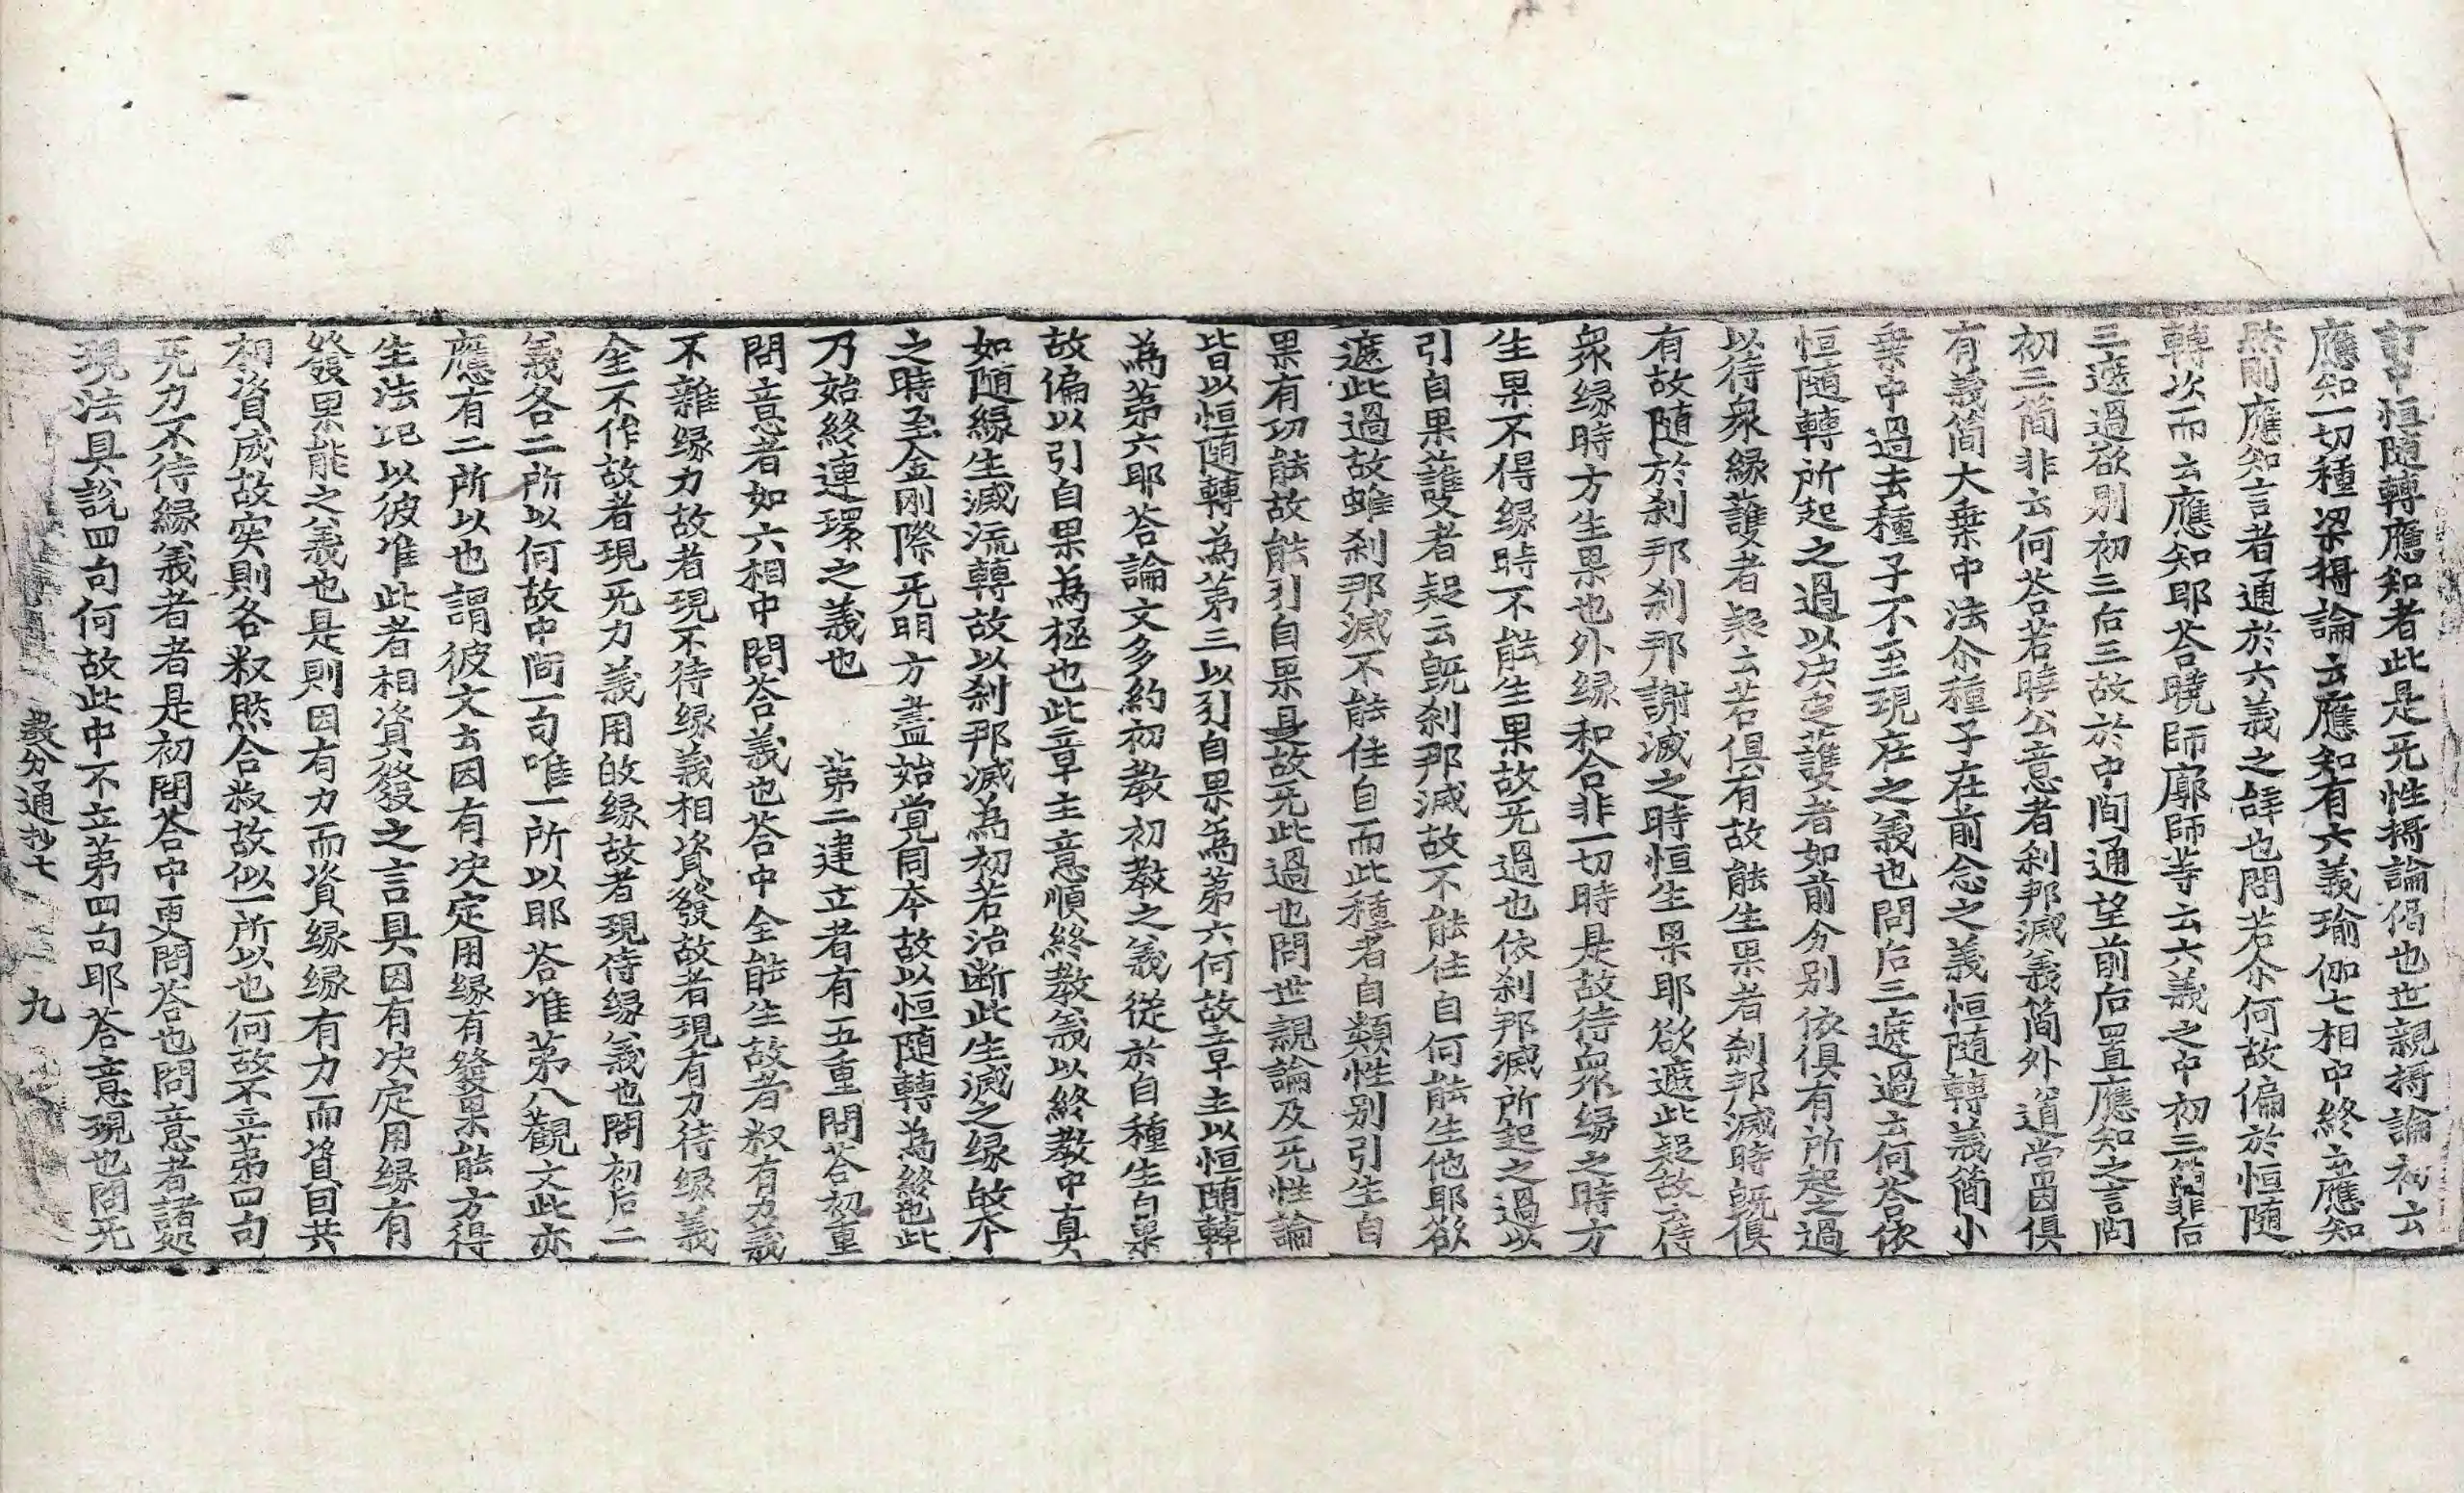 訂中恒隨轉應知者此是无性攝論偈也世親攝論初云
應知一切種梁攝論云應知有六義瑜伽七相中終云應知
然前應知言者通於六義之辭也問若尒何故偏於恒隨
轉次而云應知耶荅曉師廓師等云六義之中初三簡非后
三遮過欲別初三后三故於中間通望前后置應知之言問
初三簡非云何荅若曉公意者刹那滅義簡外道常因俱
有義簡大乗中法尒種子在前念之義恒随轉義簡小
乗中過去種子不至現在之義也問后三遮過云何荅依
恒随轉所起之過以决之護者如前分別依俱有所起之過
以待衆縁護者疑云若俱有故能生果者刹那滅時旣俱
有故随於刹那刹那謝滅之時恒生果耶欲遮此疑故云待
衆縁時方生果也外縁和合非一切時是故待衆縁之時方
生果不得縁時不能生果故无過也依刹那滅所起之過以
引自果護者疑云旣刹那滅故不能住自何能生他耶欲
遮此過故雖刹那滅不能住自而此種者自類性別引生自
果有功能故能引自果是故无此過也問世親論及无性論
皆以恒随轉為第三以引自果為第六何故章主以恒随轉
為第六耶荅論文多約初教初教之義從於自種生自果
故偏以引自果為極也此章主意順終教義以終教中真
如随緣生滅流轉故以刹那滅為初若治断此生滅之縁故不
之時至金剛際无明方盡始覺同本故以恒随轉為終也此
乃始終連環之義也　第二建立者有五重問荅初重
問意者如六相中問荅義也荅中全能生故者叔有力義
不雜縁力故者現不待縁義相資發故者現有力待縁義
全不作故者現无力義用的縁故者現待縁義也問初后二
義各二所以何故中間一句唯一所以耶荅准第八觀文此亦
應有二所以也謂彼文云因有决定用縁有發果能方得
生法記以彼准此者相資發之言具因有决定用縁有
發果能之義也是則因有力而資縁縁有力而資因共
相資成故実則各叔然合叔故似一所以也何故不立第四句
无力不待縁義者者是初問荅中更問荅也問意者諸處
現法具說四句何故此中不立第四句耶荅意現也問无
教分通抄七　九